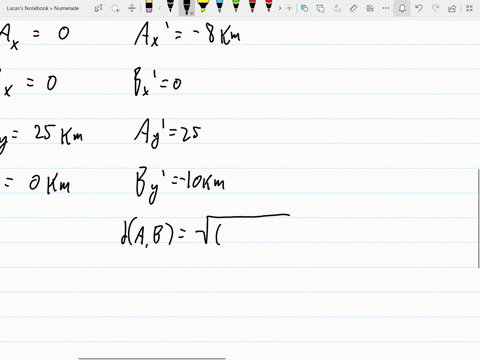 Lucas's Notebook » Numerade
Ax = 0 Ax' = -8 Km
x = 0 Bx' = 0
y = 25 Km Ay' = 25
= 0 Km By' = -10 Km
d(A,B) = √(